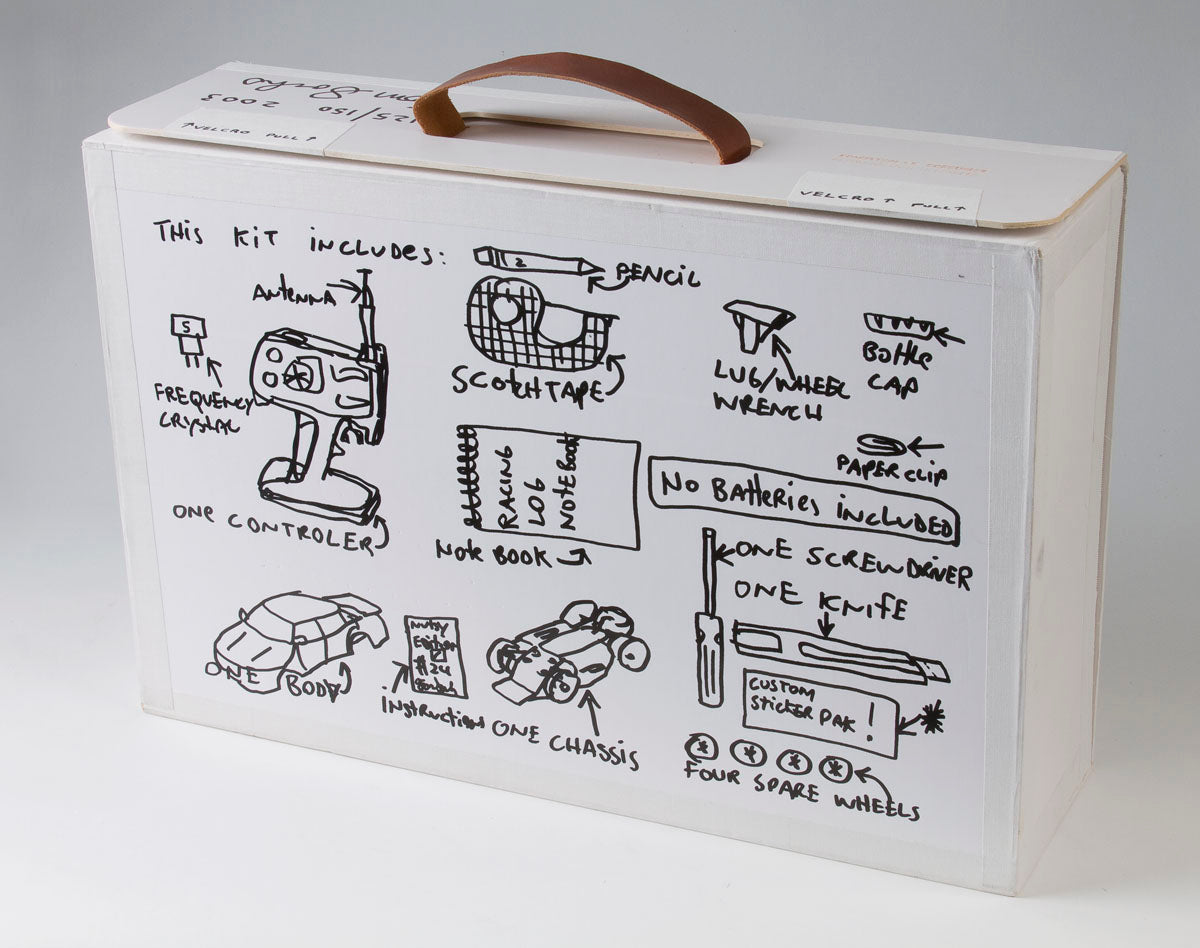 25/150
2003
↑VELCRO PULL↑
VELCRO↑ PULL↑
THIS KIT INCLUDES:
2
PENCIL
ANTENNA
S
FREQUENCY
CRYSTAL
SCOTCH TAPE
LUG/WHEEL
WRENCH
BOTTLE
CAP
PAPER CLIP
ONE CONTROLER
RACING
LOG
NOTEBOOK
NOTE BOOK
NO BATTERIES INCLUDED
ONE SCREWDRIVER
ONE KNIFE
ONE BODY
NUTSY
#24
INSTRUCTION
ONE CHASSIS
CUSTOM
STICKER PAK!
FOUR SPARE WHEELS